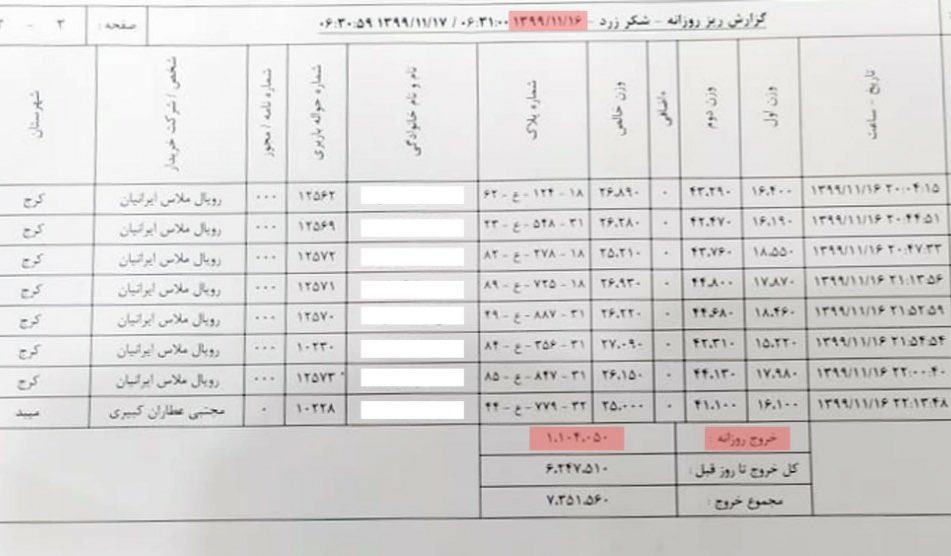 گزارش ریز روزانه - شکر زرد - ۱۳۹۹/۱۱/۱۶ ۰۶:۳۱:۰۰ / ۱۳۹۹/۱۱/۱۷ ۰۶:۳۰:۵۹ صفحه :
تاریخ - ساعت وزن اول وزن دوم اضافی وزن خالص شماره پلاک نام و نام خانوادگی شماره حواله باربری شماره نامه / مجوز شخص / شرکت خریدار شهرستان
۱۳۹۹/۱۱/۱۶ ۲۰:۰۴:۱۵ ۱۶.۴۰۰ ۴۳.۲۹۰ ۰ ۲۶.۸۹۰ ۱۸ - ۱۲۴ - ع - ۶۲ ۱۲۵۶۲ ۰۰۰ رویال ملاس ایرانیان کرج
۱۳۹۹/۱۱/۱۶ ۲۰:۴۴:۵۱ ۱۶.۱۹۰ ۴۲.۴۷۰ ۰ ۲۶.۲۸۰ ۳۱ - ۵۴۸ - ع - ۲۳ ۱۲۵۶۹ ۰۰۰ رویال ملاس ایرانیان کرج
۱۳۹۹/۱۱/۱۶ ۲۰:۴۷:۳۳ ۱۸.۵۵۰ ۴۳.۷۶۰ ۰ ۲۵.۲۱۰ ۱۸ - ۲۷۸ - ع - ۸۲ ۱۲۵۷۲ ۰۰۰ رویال ملاس ایرانیان کرج
۱۳۹۹/۱۱/۱۶ ۲۱:۱۳:۵۶ ۱۷.۸۷۰ ۴۴.۸۰۰ ۰ ۲۶.۹۳۰ ۱۸ - ۷۲۵ - ع - ۸۹ ۱۲۵۷۱ ۰۰۰ رویال ملاس ایرانیان کرج
۱۳۹۹/۱۱/۱۶ ۲۱:۵۲:۵۹ ۱۸.۴۶۰ ۴۴.۶۸۰ ۰ ۲۶.۲۲۰ ۳۱ - ۸۸۷ - ع - ۲۹ ۱۲۵۷۰ ۰۰۰ رویال ملاس ایرانیان کرج
۱۳۹۹/۱۱/۱۶ ۲۱:۵۴:۵۴ ۱۵.۲۲۰ ۴۲.۳۱۰ ۰ ۲۷.۰۹۰ ۳۱ - ۳۵۶ - ع - ۸۴ ۱۰۲۳۰ ۰۰۰ رویال ملاس ایرانیان کرج
۱۳۹۹/۱۱/۱۶ ۲۲:۰۰:۴۰ ۱۷.۹۸۰ ۴۴.۱۳۰ ۰ ۲۶.۱۵۰ ۳۱ - ۸۴۷ - ع - ۸۵ ۱۲۵۷۳ ۰۰۰ رویال ملاس ایرانیان کرج
۱۳۹۹/۱۱/۱۶ ۲۲:۱۳:۴۸ ۱۶.۱۰۰ ۴۱.۱۰۰ ۰ ۲۵.۰۰۰ ۳۲ - ۷۷۹ - ع - ۴۴ ۱۰۲۲۸ ۰ مجتبی عطاران کبیری میبد
خروج روزانه : ۱.۱۰۴.۰۵۰
کل خروج تا روز قبل : ۶.۲۴۷.۵۱۰
مجموع خروج : ۷.۳۵۱.۵۶۰